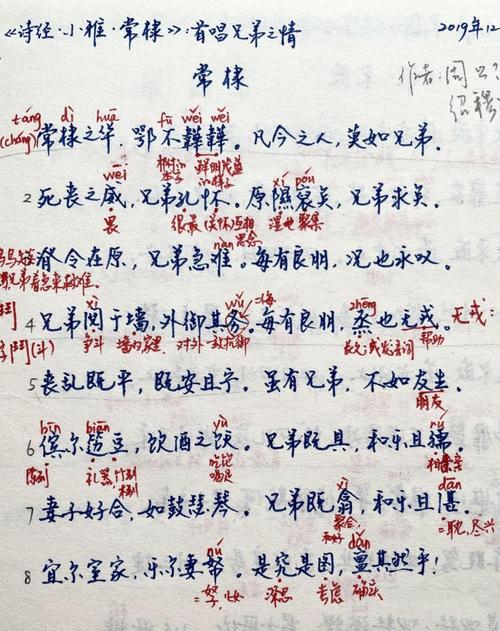 《诗经·小雅·常棣》:首唱兄弟之情 2019年12
常棣
作者:周公?
táng dì huā fū wěi wěi
(cháng)常棣之华,鄂不韡韡。凡今之人,莫如兄弟。
wēi xí póu
2 死丧之威,兄弟孔怀。原隰裒矣,兄弟求矣。
畏 很,最 湿地 聚集
nàn
脊令在原,兄弟急难。每有良朋,况也永叹。
xì wǔ 侮 zhēng
4 兄弟阋于墙,外御其务。每有良朋,烝也无戎。 无戎:
争斗 墙内家里 对外一致抗御 帮助
5 丧乱既平,既安且宁。虽有兄弟,不如友生。
朋友
bīn biān yù rú
6 傧尔笾豆,饮酒之饫。兄弟既具,和乐且孺。
陈列 礼器 吃饱喝足 相亲
xī dān
7 妻子好合,如鼓瑟琴。兄弟既翕,和乐且湛。
聚合,和好 =耽,尽兴
nú dǎn
8 宜尔室家,乐尔妻帑。是究是图,亶其然乎!
深思 考虑 确实